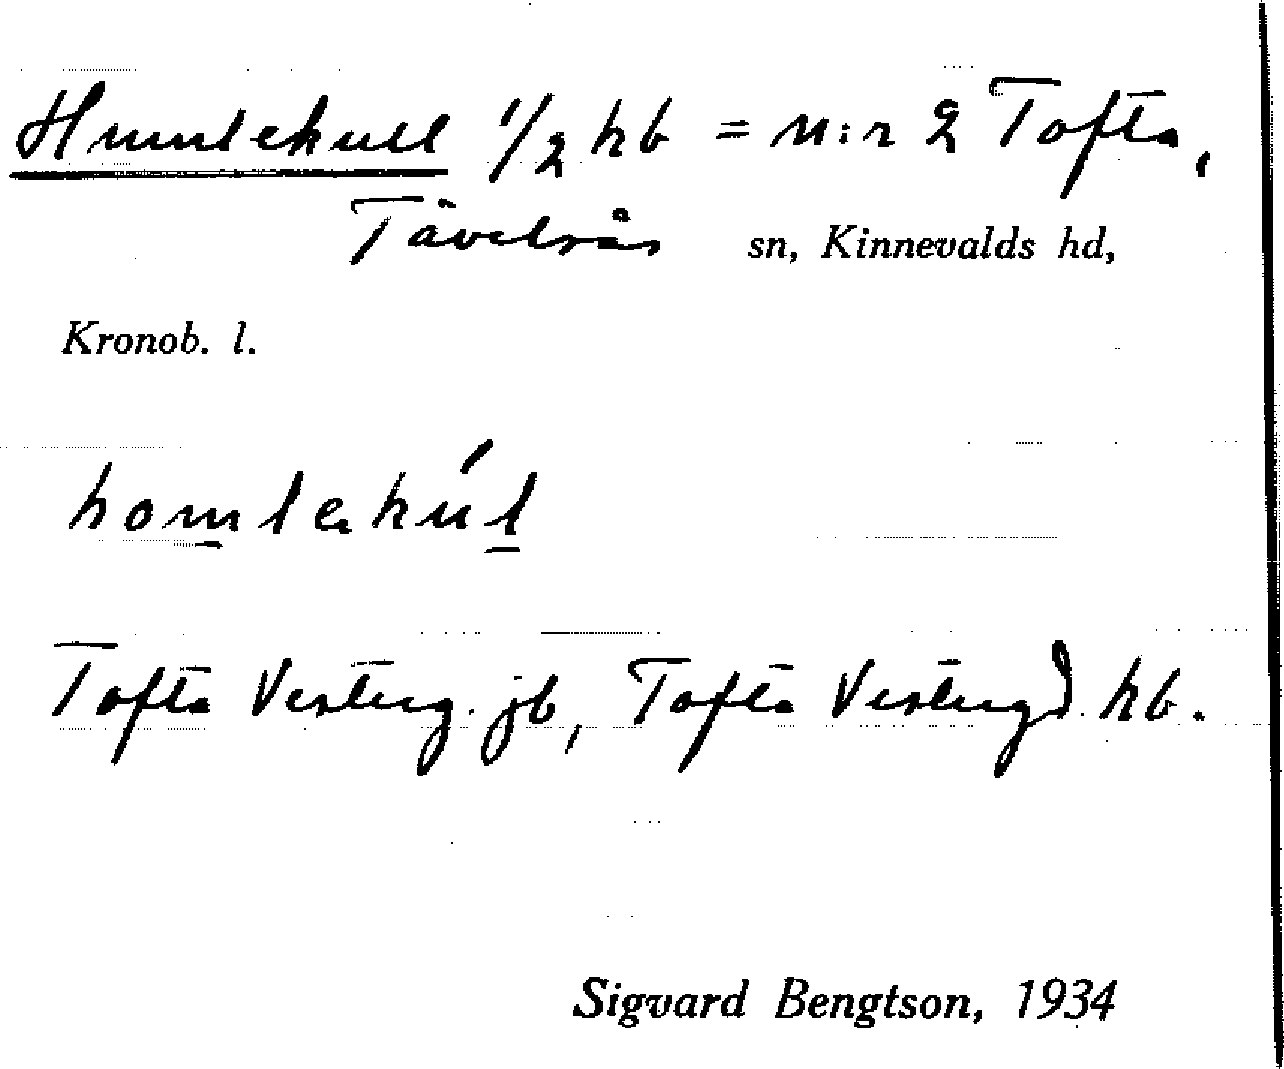 Humlekull 1/2 hb = n:r 2 Tofta,
Tävelsås sn, Kinnevalds hd,
Kronob. l.
homlekúl
Tofta Vesterg. jb, Tofta Vestergd hb.
Sigvard Bengtson, 1934